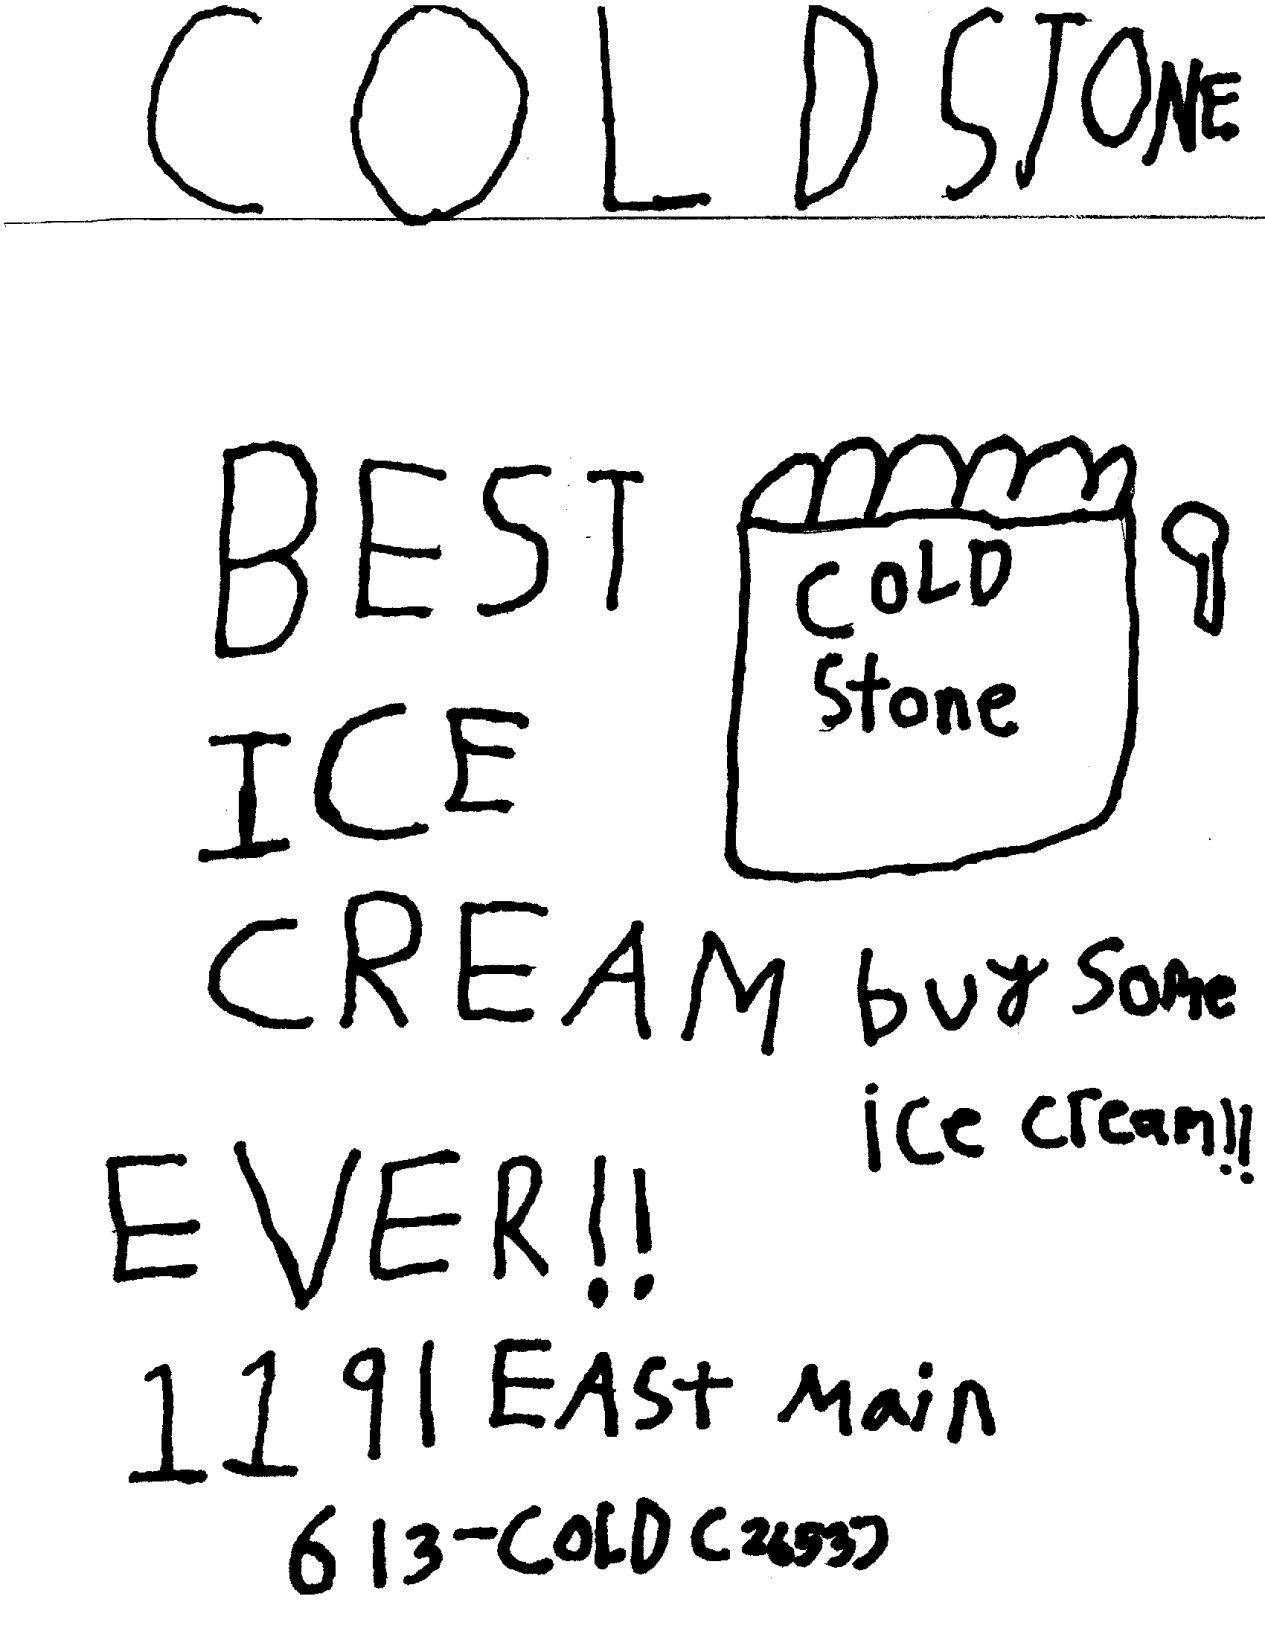 COLDSTONE
BEST
ICE
CREAM
EVER!!
COLD
Stone
buy some
ice cream!!
1191 EAST Main
613-COLD (2653)